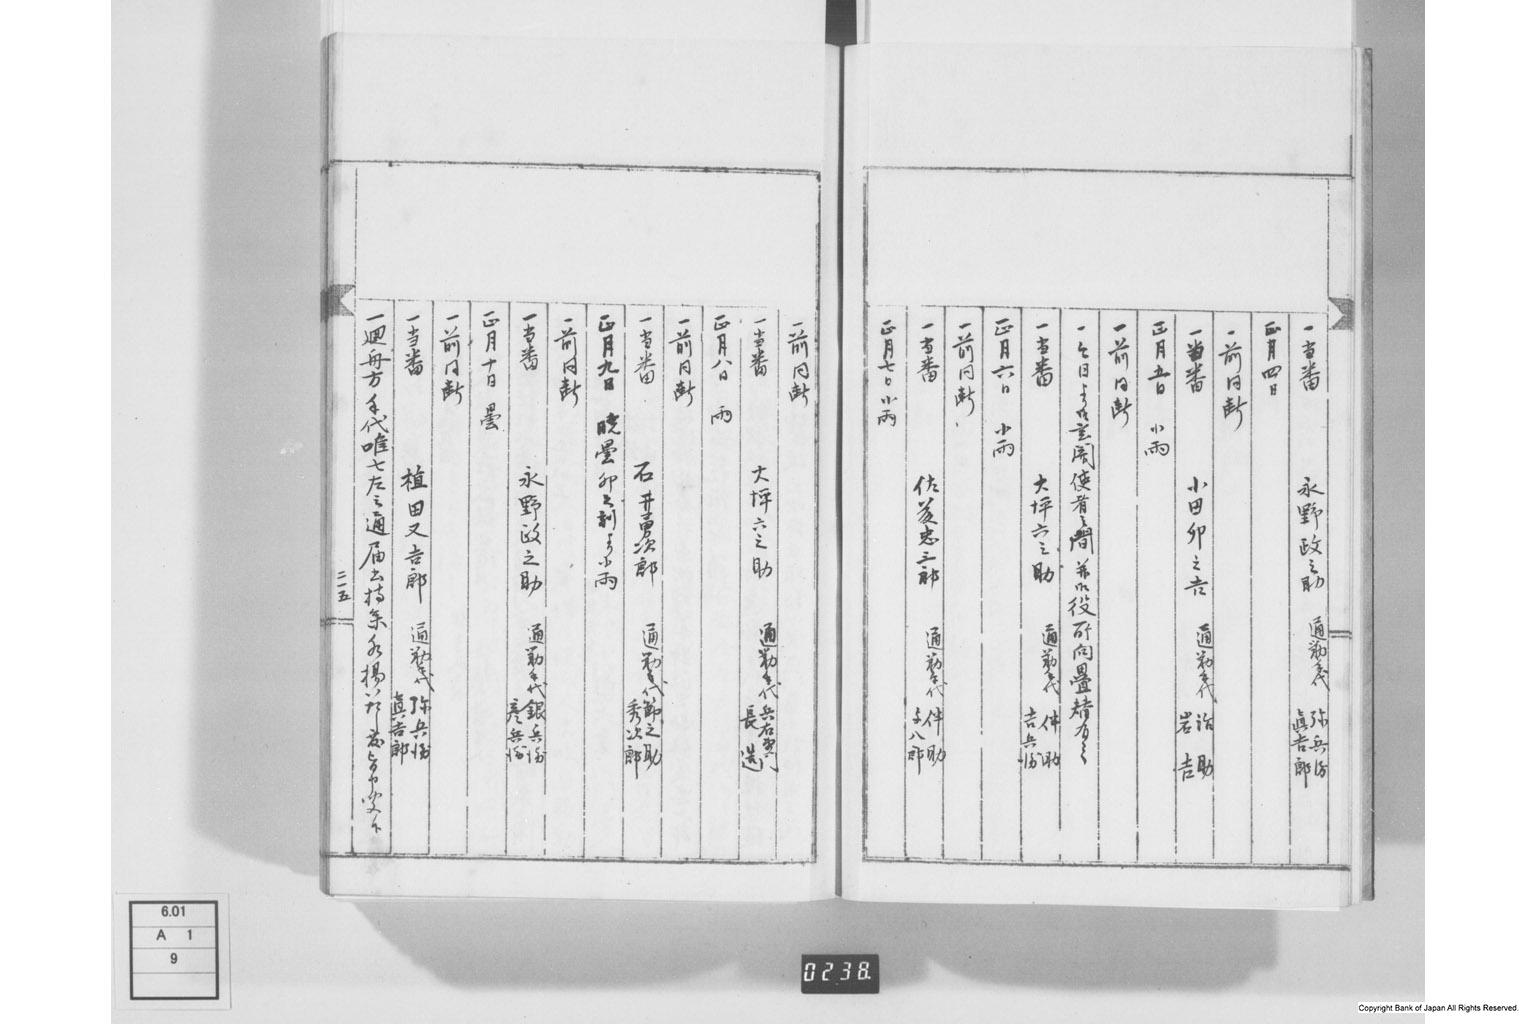 一当番 永野政之助 通勤手代 弥兵衛 眞吉郎
正月四日
一前同断
一当番 小田卯之吉 通勤手代 治助 岩吉
正月五日 小雨
一前同断
一今日より御玄関使者之間并御役所向畳替有之
一当番 大坪六之助 通勤手代 伴助 吉兵衛
正月六日 小雨
一前同断
一当番 佐藤忠三郎 通勤手代 伴助 与八郎
正月七日 小雨
一前同断
一当番 大坪六之助 通勤手代 兵右衛門 長造
正月八日 雨
一前同断
一当番 石井勇次郎 通勤手代 節之助 秀次郎
正月九日 暁曇卯之刻より小雨
一前同断
一当番 永野政之助 通勤手代 銀兵衛 彦兵衛
正月十日 曇
一前同断
一当番 植田又吉郎 通勤手代 弥兵衛 眞吉郎
一廻舟方手代唯七左之通届書持参
二二五
6.01
A 1
9
0238
Copyright Bank of Japan All Rights Reserved.